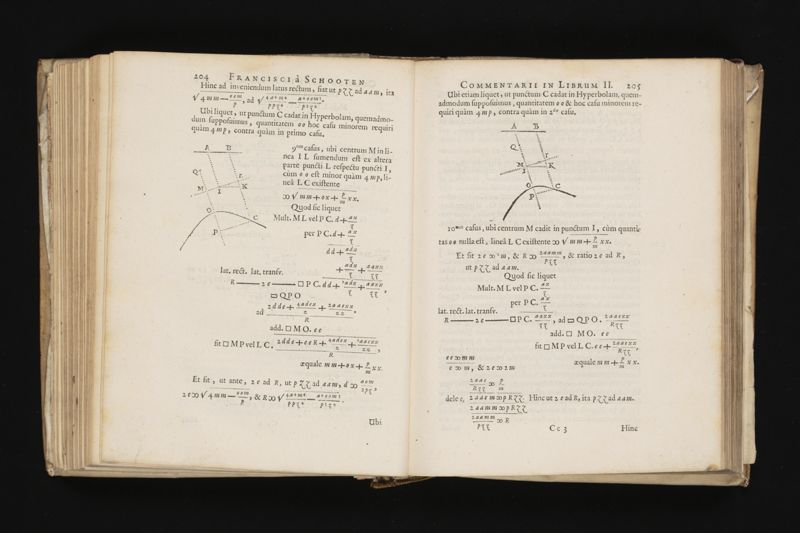 204 FRANCISCI à SCHOOTEN
Hinc ad inveniendum latus rectum, fiat ut pζζ ad aam, ita
Ubi liquet, ut punctum C cadat in Hyperbolam, quemadmo-
dum supposuimus, quantitatem oo hoc casu minorem requiri
quàm 4mp, contra quàm in primo casu.
A B
Q
r
M I K
O C
P
9nus casus, ubi centrum M in li-
nea I L sumendum est ex altera
parte puncti L respectu puncti I,
cùm oo est minor quàm 4mp, li-
neâ L C existente
∞ √ mm + ox + p/m xx.
Quod sic liquet
Mult. M L vel P C. d + ax/ζ
per P C. d + ax/ζ
dd + adx/ζ
+ adx/ζ + aaxx/ζζ
lat. rect. lat. transv.
R — 2e — □ P C. dd + 2adx/ζ + aaxx/ζζ,
▭ Q P O
ad
add. □ M O. ee
fit □ M P vel L C.
æquale mm + ox + p/m xx.
Et fit, ut ante, 2e ad R, ut pζζ ad aam, d ∞
Ubi
COMMENTARII IN LIBRUM II. 205
Ubi etiam liquet, ut punctum C cadat in Hyperbolam, quem-
admodum supposuimus, quantitatem oo & hoc casu minorem re-
quiri quàm 4mp, contra quàm in 2do casu.
A B
Q
r
M K
O C
P
10mus casus, ubi centrum M cadit in punctum I, cùm quanti-
tas oo nulla est, lineâ L C existente ∞ √ mm + p/m xx.
Et fit 2e ∞ 2m, & R ∞ 2aamm/pζζ, & ratio 2e ad R,
ut pζζ ad aam.
Quod sic liquet
Mult. M L vel P C. ax/ζ
per P C. ax/ζ
lat. rect. lat. transv.
R — 2e — □ P C. aaxx/ζζ, ad ▭ Q P O. 2aaexx/Rζζ
add. □ M O. ee
fit □ M P vel L C. ee + 2aaexx/Rζζ,
æquale mm + p/m xx.
ee ∞ mm
e ∞ m, & 2e ∞ 2m
2aae/Rζζ ∞ p/m
dele e, 2aaem ∞ pRζζ. Hinc ut 2e ad R, ita pζζ ad aam.
2aamm ∞ pRζζ
2aamm/pζζ ∞ R
Cc 3 Hinc